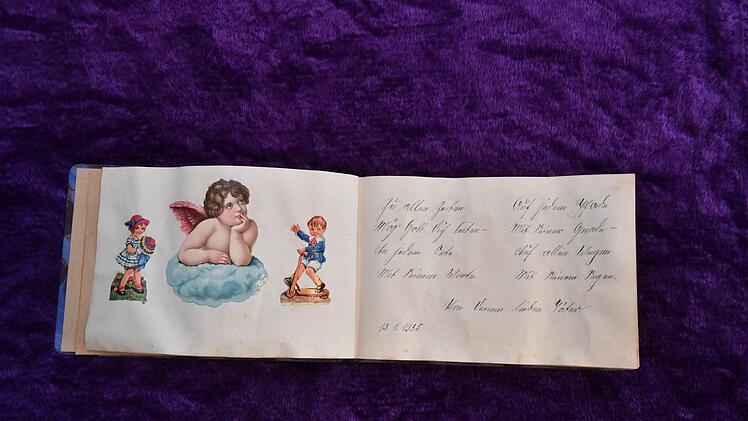 Zu allen Zeiten
Mög' Gott Dich leiten –
An jedem Orte
Mit Seinem Worte
Auf jedem Pfade
Mit Seiner Gnade –
Auf allen Wegen
Mit Seinem Segen.
Von Deinem lieben Vater
13. 1. 1936.